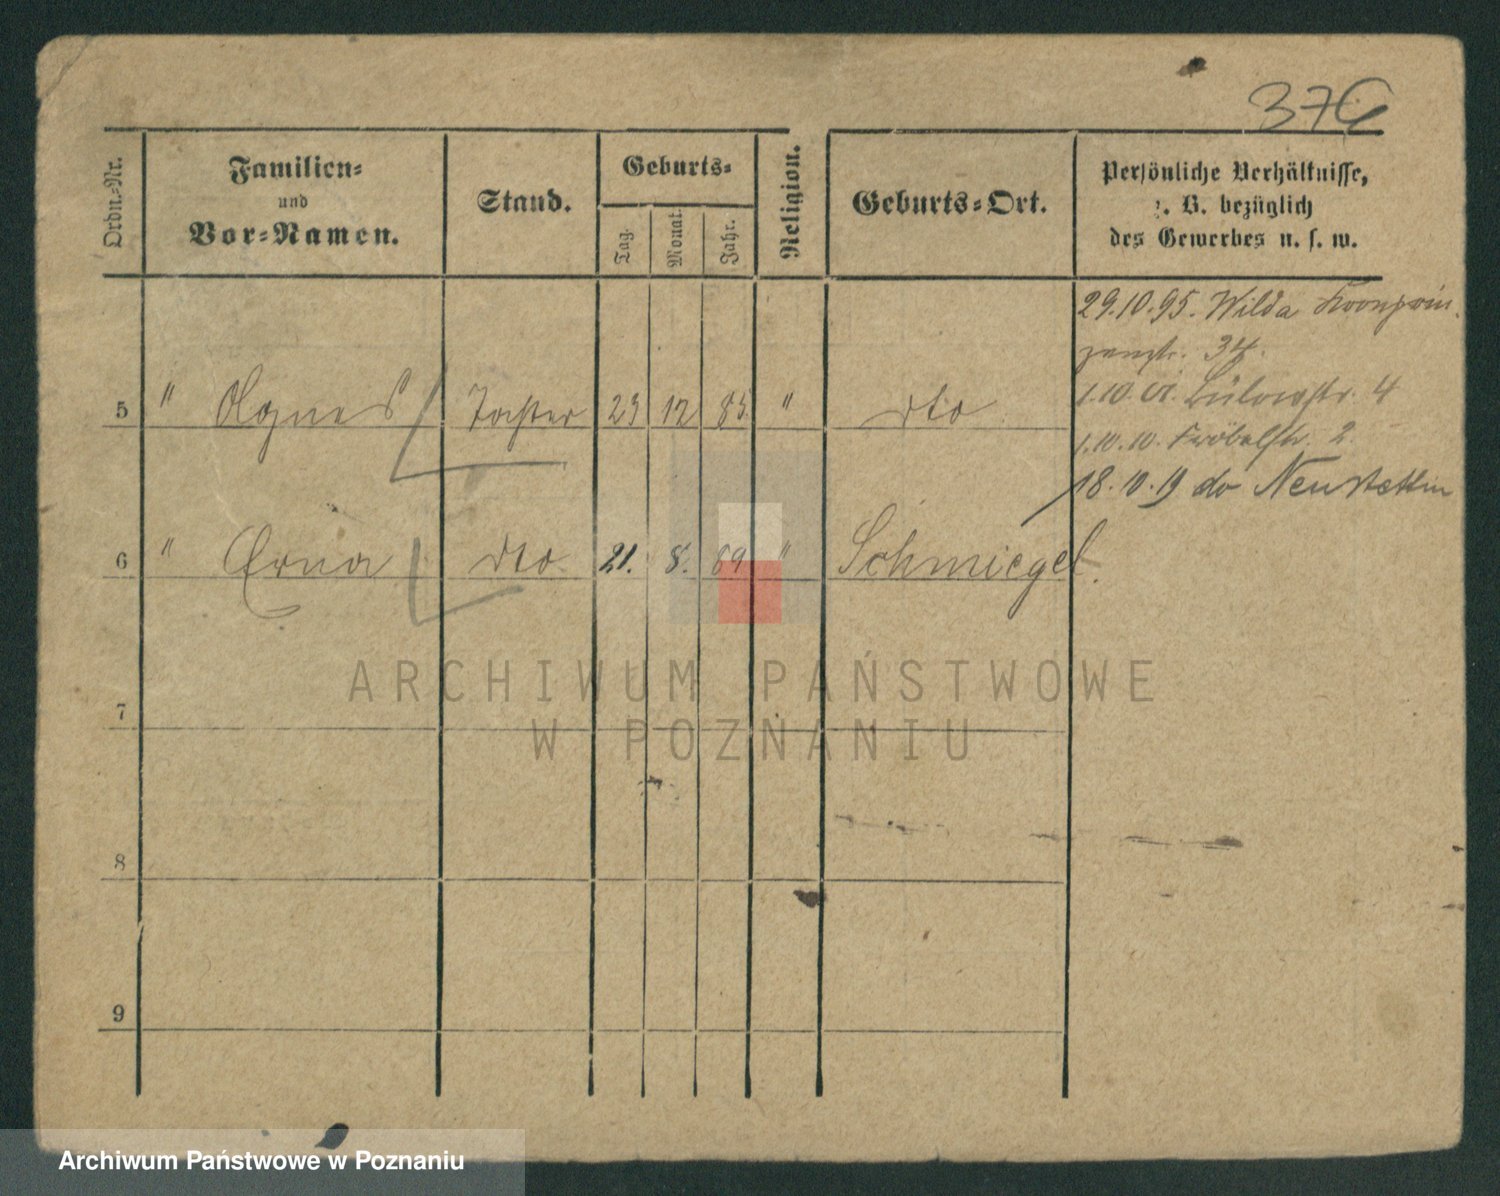 376
Ordn.-Nr.
Familien-
und
Vor-Namen.
Stand.
Geburts-
Tag.
Monat.
Jahr.
Religion.
Geburts-Ort.
Persönliche Verhältnisse,
z. B. bezüglich
des Gewerbes u. s. w.
29.10.95. Wilda Kronprin
zenstr. 34.
5 " Agnes Tochter 23 12 85 " dto
1.10.01. Bülowstr. 4
1.10.10. Fröbelstr. 2.
18.10.19 do Neustettin
6 " Erna dto 21. 8. 89 " Schmiegel.
7
8
9
ARCHIWUM PAŃSTWOWE
W POZNANIU
Archiwum Państwowe w Poznaniu